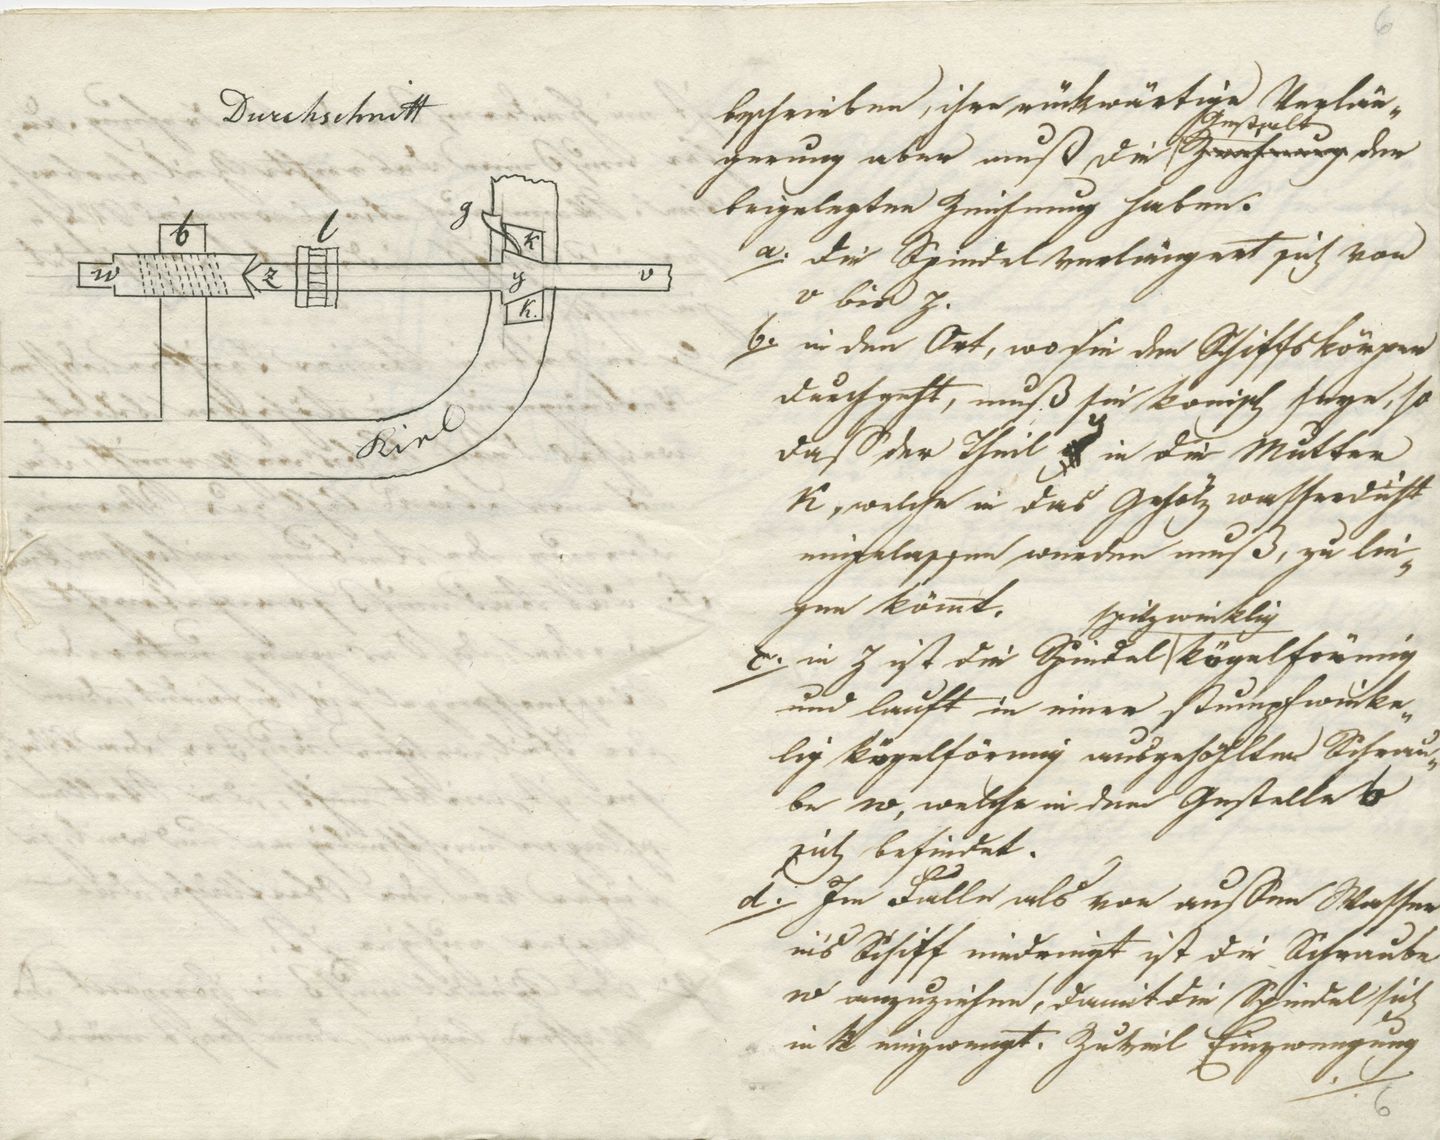 Durchschnitt
b
l
g
w
z
k
y
v
k.
Kiel
6
beschrieben, ihre rückwärtige Verlän-
Gestalt
gerung aber muß die Zeichnung der
beigelegten Zeichnung haben.
a. die Spindel verlängert sich von
v bis z.
b. in den Ort, wo sie den Schiffskörper
durchgeht, muß sie konisch seyn, so
daß der Theil y in die Mutter
K, welche in das Gehölz wasserdicht
eingelassen werden muß, zu lie-
gen kömmt.
spitzwinklig
c. in z ist die Spindel kögelförmig
und lauft in einer stumpfwinke-
lig kögelförmig ausgehöhlten Schrau-
be w, welche in dem Gestelle b
sich befindet.
d. Im Falle als von aussen Wasser
in's Schiff eindringt ist die Schraube
w anzuziehen, damit die Spindel sich
in K einzwengt. Zuviel Einzwengung
6